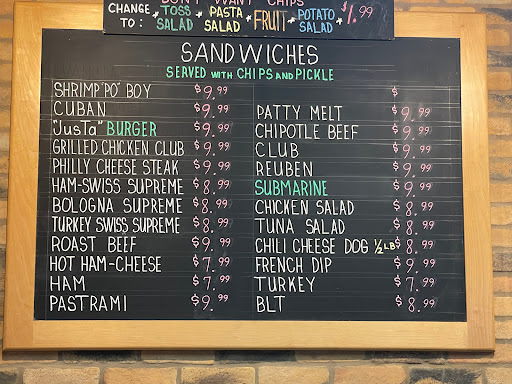 DON'T WANT CHIPS
CHANGE TO: TOSS SALAD * PASTA SALAD * FRUIT * POTATO SALAD $1.99
SANDWICHES
SERVED WITH CHIPS AND PICKLE
SHRIMP "PO" BOY $9.99
CUBAN $9.99
"JusTa" BURGER $9.99
GRILLED CHICKEN CLUB $9.99
PHILLY CHEESE STEAK $9.99
HAM-SWISS SUPREME $8.99
BOLOGNA SUPREME $8.99
TURKEY SWISS SUPREME $8.99
ROAST BEEF $9.99
HOT HAM-CHEESE $7.99
HAM $7.99
PASTRAMI $9.99
$
PATTY MELT $9.99
CHIPOTLE BEEF $9.99
CLUB $9.99
REUBEN $9.99
SUBMARINE $9.99
CHICKEN SALAD $8.99
TUNA SALAD $8.99
CHILI CHEESE DOG ½LB $8.99
FRENCH DIP $9.99
TURKEY $7.99
BLT $8.99